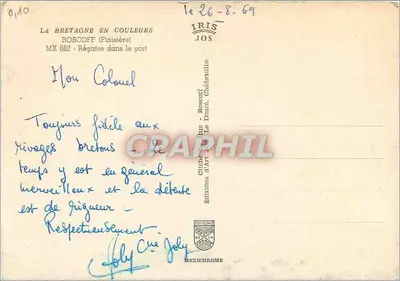 0,10
le 26-8-69
LA BRETAGNE EN COULEURS
ROSCOFF (Finistère)
MX 662 - Régates dans le port
IRIS
JOS
Mon Colonel
Toujours fidèle aux
rivages bretons - le
temps y est en général
merveilleux et la détente
est de rigueur -
Respectueusement
Joly
Cne Joly
CARAPHIL
Cliché - Roscoff
Editions d'Art Le Doaré, Châteaulin
MEXICHROME